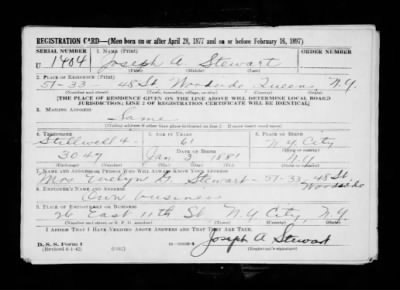 REGISTRATION CARD—(Men born on or after April 28, 1877 and on or before February 16, 1897)
SERIAL NUMBER 1. NAME (Print) ORDER NUMBER
U 1404 Joseph A Stewart
(First) (Middle) (Last)
2. PLACE OF RESIDENCE (Print)
51-33 48 St. Woodside Queens N.Y.
(Number and street) (Town, township, village, or city) (County) (State)
[THE PLACE OF RESIDENCE GIVEN ON THE LINE ABOVE WILL DETERMINE LOCAL BOARD
JURISDICTION; LINE 2 OF REGISTRATION CERTIFICATE WILL BE IDENTICAL]
3. MAILING ADDRESS
Same
[Mailing address if other than place indicated on line 2. If same insert word same]
4. TELEPHONE 5. AGE IN YEARS 6. PLACE OF BIRTH
Stillwell 4- 61 N.Y. City
DATE OF BIRTH
3047 Jan 3 1881 N.Y.
(Exchange) (Number) (Mo.) (Day) (Yr.) (State or country)
7. NAME AND ADDRESS OF PERSON WHO WILL ALWAYS KNOW YOUR ADDRESS
Mrs Evelyn G. Stewart - 51-33 - 48 St Woodside
8. EMPLOYER'S NAME AND ADDRESS
Own business
9. PLACE OF EMPLOYMENT OR BUSINESS
26 East 11th St N.Y. City, N.Y.
(Number and street or R. F. D. number) (Town) (County) (State)
I AFFIRM THAT I HAVE VERIFIED ABOVE ANSWERS AND THAT THEY ARE TRUE.
D. S. S. Form 1
(Revised 4-1-42) (over) Joseph A Stewart
(Registrant's signature)